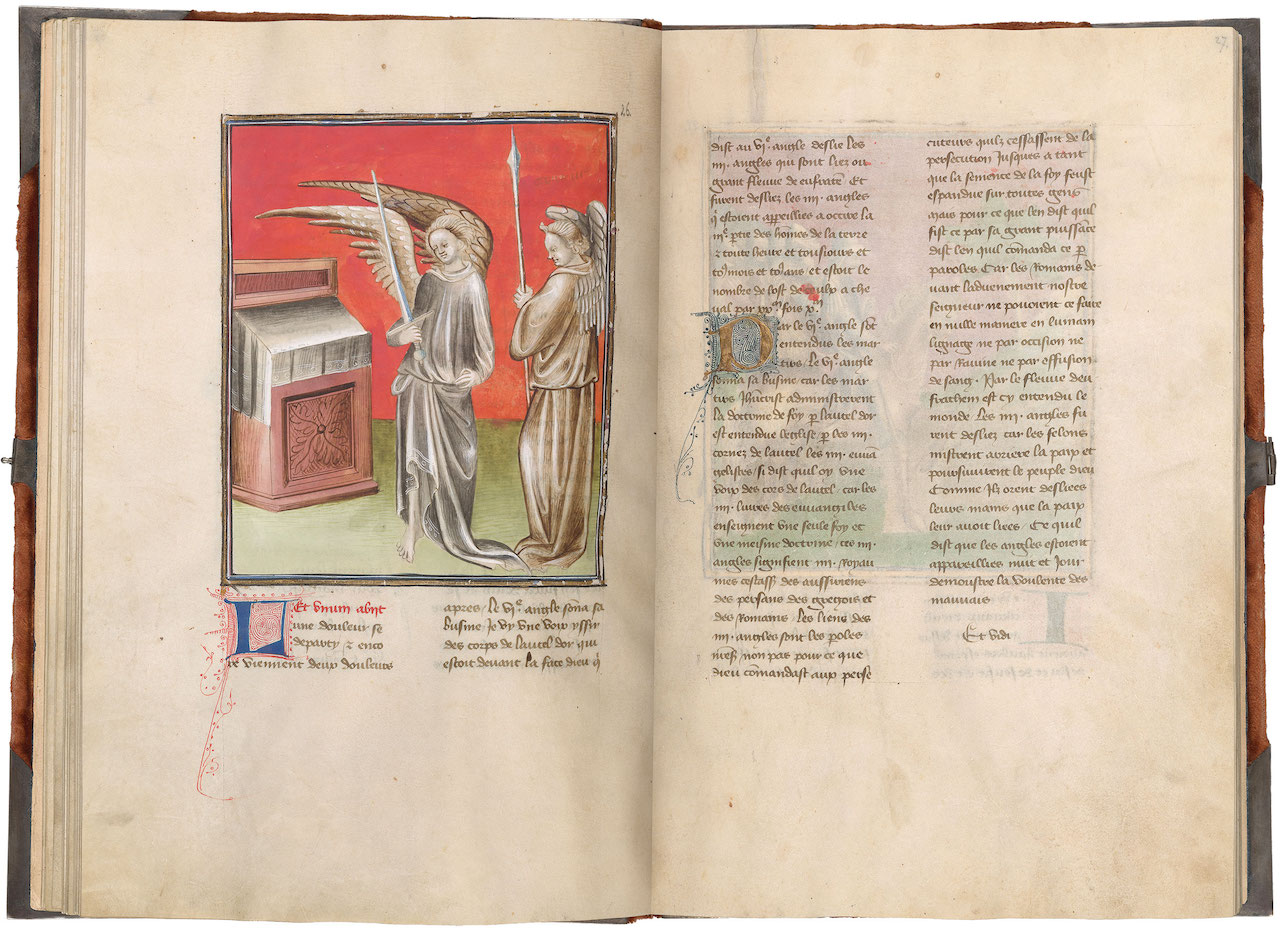 26.
Et vnum abijt
une douleur se
departy / z enco
re viennent deux douleurs
apres / Le vi.e angle sona sa
busine / Je oy vne voix yssir
des corps de lautel dor qui
estoit devant la face dieu q̄
27
dist au vi.e angle deslie les
iiij. angles qui sont liez ou
grant fleuve de eufraten Et
furent desliez les iiij. angles
q̄ estoient appeillies a occire la
iij.e p̄tie des homes de la terre
z toute heure et tousiours et
mois et ans / et estoit le
nombre de lost de a che
val par fois
ar le vi.e angle sōt
entendus les mar
tirs. Le vi.e angle
sonna sa busine car les mar
tirs administrerent
la doctrine de foy p̄ lautel dor
est entendue leglise / p̄ les iiij.
cornez de lautel les iiij. euuā
gelistes / si dist quil oy vne
voix des cors de lautel. car les
iiij. liures des euuangiles
enseignent vne seule foy et
vne meisme doctrine / ces iiij.
angles signifient iiij. Royau
mes cestass des assuriens
des persans des gregois et
des Romanis. Les liens des
iiij. angles sont les poles
non pas pour ce que
dieu cōmandast aux perse
cuteurs quilz cessassent de la
persecution Jusques a tant
que la semence de la foy feust
espandue sur toutes gens
mais pour ce que len dist quil
fist ce par sa grant puissāce
dist len quil cōmanda ce p̄
paroles Car les Romanis de
uant laduenement nostre
seigneur ne pouoient ce faire
en nulle maniere en lumain
lignage ne par occision ne
par Rauine ne par effusion
de sang. Par le fleuue deu
frathem est cy entendu le
monde. Les iiij. angles fu
rent desliez car les felons
mistrent arriere la paix et
poursuiuirent le peuple dieu
Comme ilz orent desliees
leurs mains que la paix
leur auoit liees. Ce quil
dist que les angles estoient
appareillies nuit et Jour
demoustre la voulente des
mauuais
Et vidi